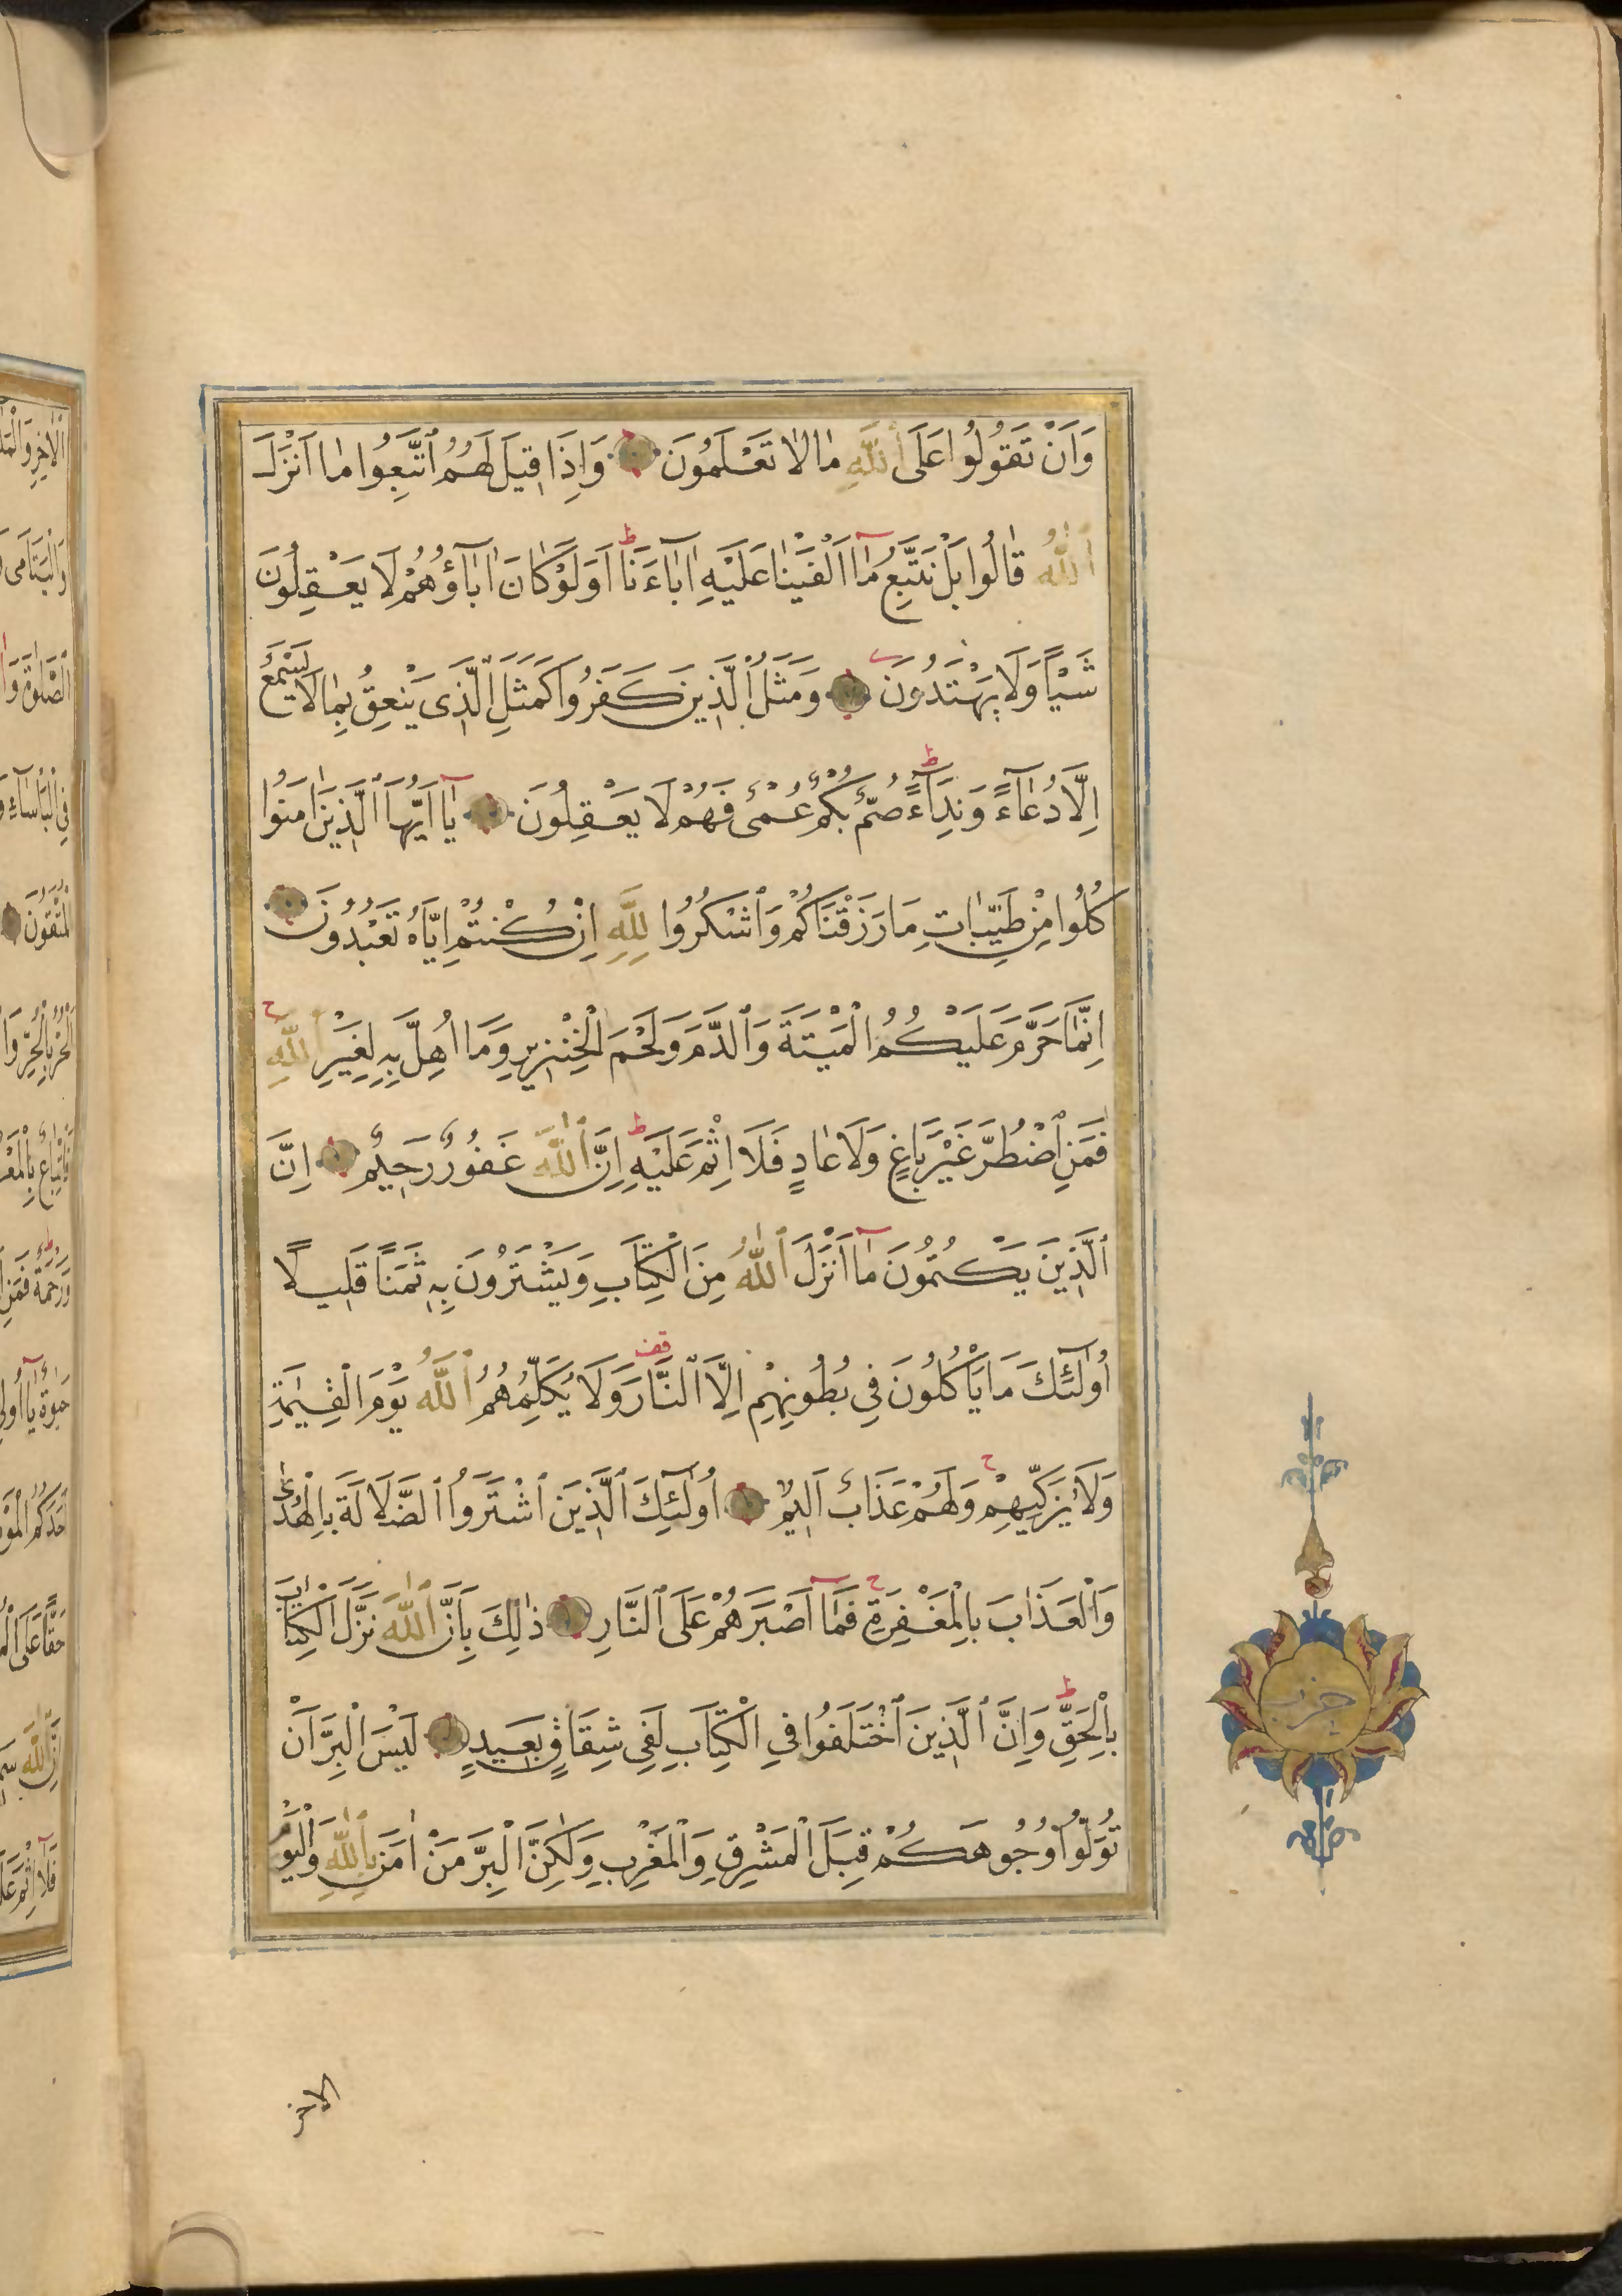 وَاَنْ تَقُولُوا عَلَى ٱللّٰهِ مَا لَا تَعْلَمُونَ وَاِذَا قِيلَ لَهُمُ ٱتَّبِعُوا مَا اَنْزَلَ
ٱللّٰهُ قَالُوا بَلْ نَتَّبِعُ مَٓا اَلْفَيْنَا عَلَيْهِ اٰبَاءَنَا ط اَوَلَوْ كَانَ اٰبَاؤُهُمْ لَا يَعْقِلُونَ
شَيْـًٔا وَلَا يَهْتَدُونَ وَمَثَلُ ٱلَّذِينَ كَفَرُوا كَمَثَلِ ٱلَّذِى يَنْعِقُ بِمَا لَا يَسْمَعُ
اِلَّا دُعَٓاءً وَنِدَٓاءً ط صُمٌّ بُكْمٌ عُمْىٌ فَهُمْ لَا يَعْقِلُونَ يَٓا اَيُّهَا ٱلَّذِينَ اٰمَنُوا
كُلُوا مِنْ طَيِّبَاتِ مَا رَزَقْنَاكُمْ وَٱشْكُرُوا لِلّٰهِ اِنْ كُنْتُمْ اِيَّاهُ تَعْبُدُونَ
اِنَّمَا حَرَّمَ عَلَيْكُمُ الْمَيْتَةَ وَٱلدَّمَ وَلَحْمَ الْخِنْزِيرِ وَمَا اُهِلَّ بِهِ لِغَيْرِ ٱللّٰهِ ح
فَمَنِ ٱضْطُرَّ غَيْرَ بَاغٍ وَلَا عَادٍ فَلَا اِثْمَ عَلَيْهِ ط اِنَّ ٱللّٰهَ غَفُورٌ رَحِيمٌ اِنَّ
ٱلَّذِينَ يَكْتُمُونَ مَٓا اَنْزَلَ ٱللّٰهُ مِنَ الْكِتَابِ وَيَشْتَرُونَ بِهِ ثَمَنًا قَلِيلًا
اُولٰٓئِكَ مَا يَاْكُلُونَ فِى بُطُونِهِمْ اِلَّا ٱلنَّارَ قف وَلَا يُكَلِّمُهُمُ ٱللّٰهُ يَوْمَ الْقِيٰمَةِ
وَلَا يُزَكِّيهِمْ ح وَلَهُمْ عَذَابٌ اَلِيمٌ اُولٰٓئِكَ ٱلَّذِينَ ٱشْتَرَوُا ٱلضَّلَالَةَ بِالْهُدٰى
وَالْعَذَابَ بِالْمَغْفِرَةِ ح فَمَٓا اَصْبَرَهُمْ عَلَى ٱلنَّارِ ذٰلِكَ بِاَنَّ ٱللّٰهَ نَزَّلَ الْكِتَابَ
بِالْحَقِّ ط وَاِنَّ ٱلَّذِينَ ٱخْتَلَفُوا فِى الْكِتَابِ لَفِى شِقَاقٍ بَعِيدٍ لَيْسَ الْبِرَّ اَنْ
تُوَلُّوا وُجُوهَكُمْ قِبَلَ الْمَشْرِقِ وَالْمَغْرِبِ وَلٰكِنَّ الْبِرَّ مَنْ اٰمَنَ بِٱللّٰهِ وَالْيَوْمِ
الاخر
حزب